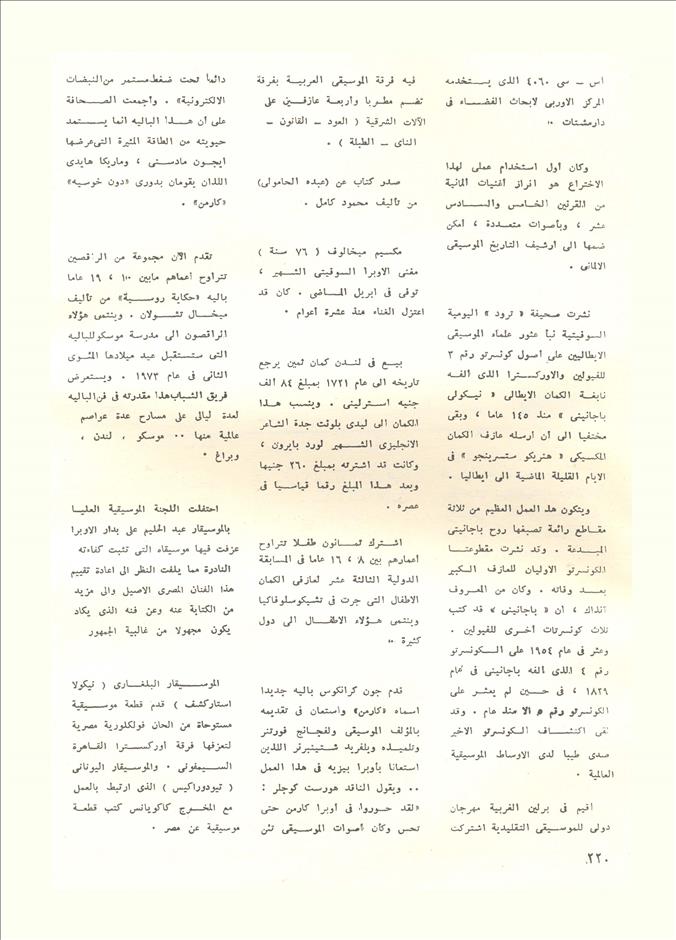 اس – سى ٤٠٦٠ الذى يستخدمه
المركز الاوربى لابحاث الفضاء فى
دارمشتات ..
وكان أول استخدام عملى لهذا
الاختراع هو افراز أغنيات ألمانية
من القرنين الخامس والسادس
عشر ، وبأصوات متعددة ، أمكن
ضمها الى أرشيف التاريخ الموسيقى
الالمانى .
نشرت صحيفة « ترود » اليومية
السوفيتية نبأ عثور علماء الموسيقى
الايطاليين على أصول كونسرتو رقم ٣
للفيولين والاوركسترا الذى ألفه
نابغة الكمان الايطالى « نيكولى
باجانينى » منذ ١٤٥ عاما ، وبقى
مختفيا الى أن أرسله عازف الكمان
المكسيكى « هنريكو ستسرينجو » فى
الايام القليلة الماضية الى ايطاليا .
ويتكون هذ العمل العظيم من ثلاثة
مقاطع رائعة تصبغها روح باجانينى
المبدعة . وقد نشرت مقطوعتا
الكونسرتو الاوليان للعازف الكبير
بعد وفاته . وكان من المعروف
آنذاك ، أن « باجانينى » قد كتب
ثلاث كونسرتات أخرى للفيولين .
وعثر فى عام ١٩٥٤ على الكونسرتو
رقم ٤ الذى الفه باجانينى فى عام
١٨٢٩ ، فى حين لم يعثر على
الكونسرتو رقم ٥ الا منذ عام . وقد
لقى اكتشاف الكونسرتو الاخير
صدى طيبا لدى الاوساط الموسيقية
العالمية .
اقيم فى برلين الغربية مهرجان
دولى للموسيقى التقليدية اشتركت
فيه فرقة الموسيقى العربية بفرقة
تضم مطربا وأربعة عازفين على
الآلات الشرقية ( العود – القانون –
الناى – الطبلة ) .
صدر كتاب عن (عبده الحامولى)
من تأليف محمود كامل .
مكسيم ميخالوف ( ٧٦ سنة )
مغنى الاوبرا السوفيتى الشهير ،
توفى فى ابريل الماضى . كان قد
اعتزل الغناء منذ عشرة أعوام .
بيع فى لندن كمان ثمين يرجع
تاريخه الى عام ١٧٢١ بمبلغ ٨٤ ألف
جنيه استرلينى . وينسب هذا
الكمان الى ليدى بلونت جدة الشاعر
الانجليزى الشهير لورد بايرون ،
وكانت قد اشترته بمبلغ ٢٦٠ جنيها
ويعد هذا المبلغ رقما قياسيا فى
عصره .
اشترك ثمانون طفلا تتراوح
أعمارهم بين ٨ ، ١٦ عاما فى المسابقة
الدولية الثالثة عشر لعازفى الكمان
الاطفال التى جرت فى تشيكوسلوفاكيا
وينتمى هؤلاء الاطفال الى دول
كثيرة ..
قدم جون كرانكوس باليه جديدا
اسماه «كارمن» واستعان فى تقديمه
بالمؤلف الموسيقى ولفجانج فورتنر
وتلميذه ويلفريد شتينبرنر اللذين
استعانا بأوبرا بيزيه فى هذا العمل
.. ويقول الناقد هورست كوجلر :
«لقد حوروا فى أوبرا كارمن حتى
تحس وكأن أصوات الموسيقى تئن
دائما تحت ضغط مستمر من النبضات
الالكترونية» . وأجمعت الصحافة
على أن هذا الباليه انما يستمد
حيويته من الطاقة المثيرة التى عرضها
ايجون مادستى ، وماريكا هايدى
اللذان يقومان بدورى «دون خوسيه»
«كارمن» .
تقدم الآن مجموعة من الراقصين
تتراوح أعماهم مابين ١٠ ، ١٩ عاما
باليه «حكاية روسية» من تأليف
ميخال تشولان . وينتمى هؤلاء
الراقصون الى مدرسة موسكو للباليه
التى ستستقبل عيد ميلادها المئوى
الثانى فى عام ١٩٧٣ . ويستعرض
فريق الشباب هذا مقدرته فى فن الباليه
لعدة ليالى على مسارح عدة عواصم
عالمية منها .. موسكو ، لندن ،
وبراغ .
احتفلت اللجنة الموسيقية العليا
بالموسيقار عبد الحليم على بدار الاوبرا
عزفت فيها موسيقاه التى تثبت كفاءته
النادرة مما يلفت النظر الى اعادة تقييم
هذا الفنان المصرى الاصيل والى مزيد
من الكتابة عنه وعن فنه الذى يكاد
يكون مجهولا من غالبية الجمهور
الموسيقار البلغارى ( نيكولا
استاركشف ) قدم قطعة موسيقية
مستوحاة من الحان فولكلورية مصرية
لتعزفها فرقة أوركسترا القاهرة
السيمفونى . والموسيقار اليونانى
( تيودوراكيس ) الذى ارتبط بالعمل
مع المخرج كاكويانس كتب قطعة
موسيقية عن مصر .
٢٢٠